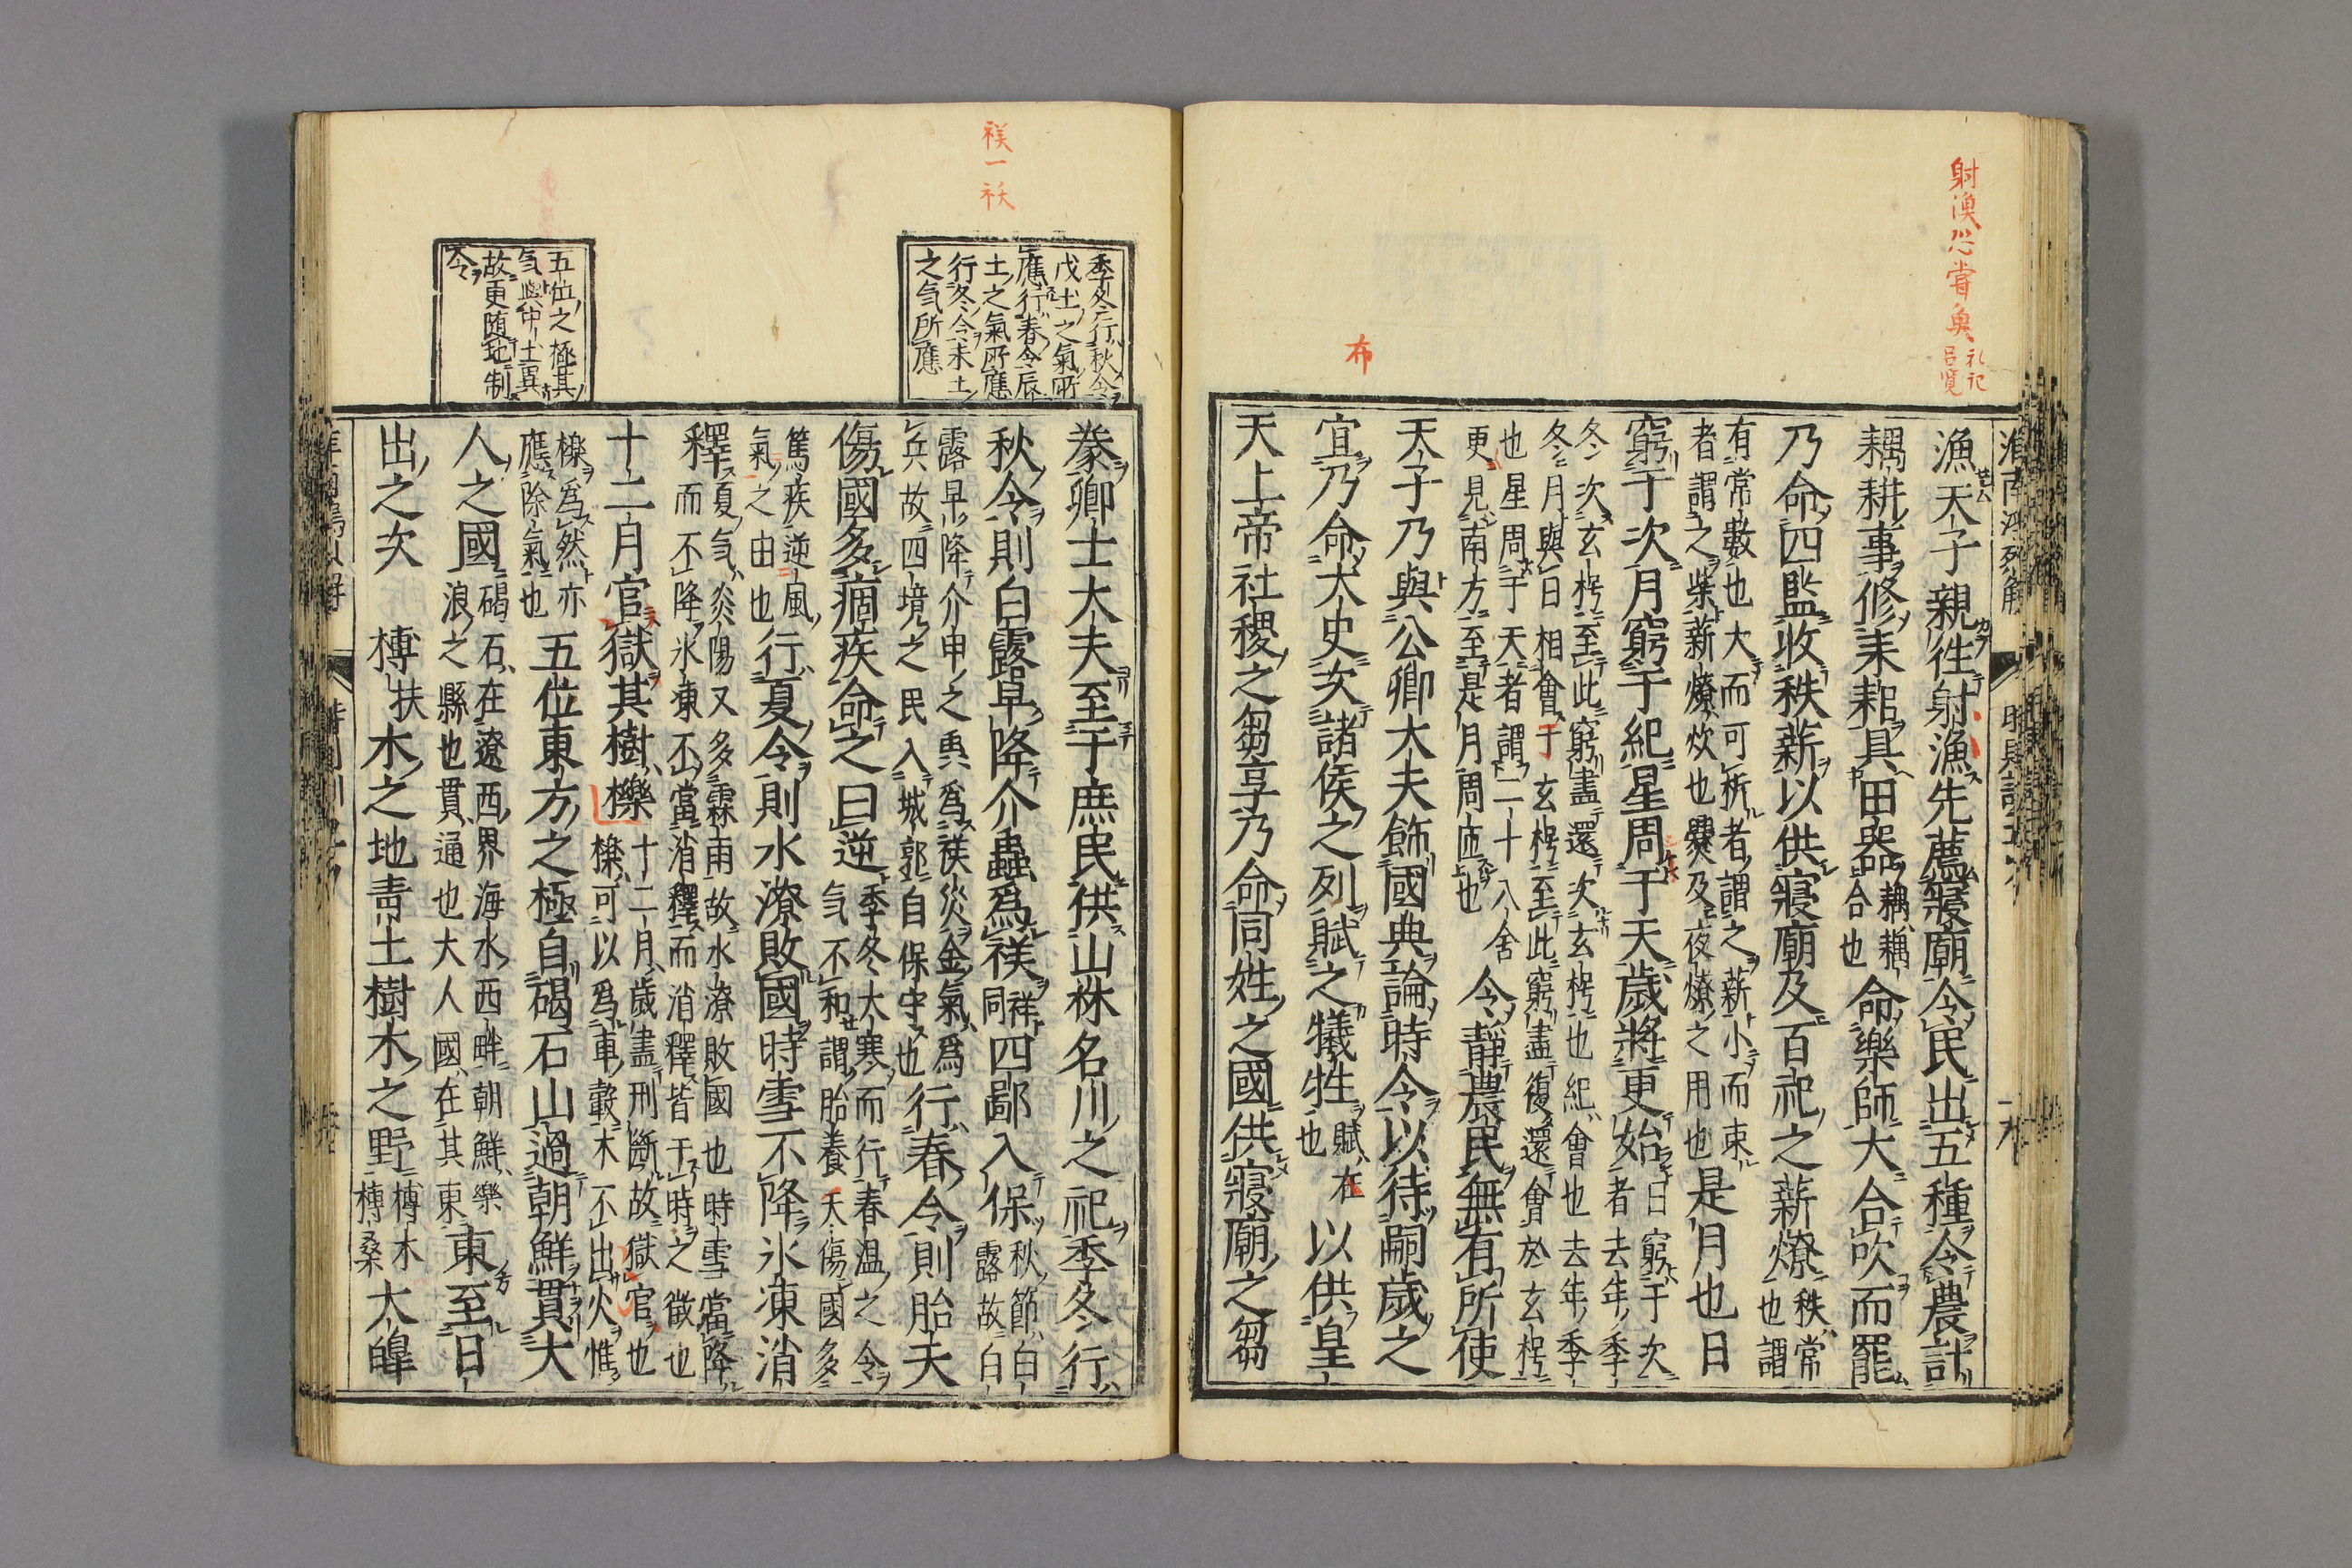 射漁必嘗魚 礼記
呂覽
布
漁天子親往射漁先薦寢廟令民出五種令農計
耦耕事修耒耜具田器耦耦
合也命樂師大合吹而罷
乃命四監收秩薪以供寢廟及百祀之薪燎秩常
也謂
有常數也大而可析者謂之薪小而束
者謂之柴薪燎炊也爨及夜燎之用也是月也日
窮于次月窮于紀星周于天歲將更始日窮于次
者去年季
冬次玄枵至此窮盡還次玄枵也紀會也去年季
冬月與日相會于玄枵至此窮盡復還會於玄枵
也星周于天者謂二十八舍
更見南方至是月周匝也令靜農民無有所使
天子乃與公卿大夫飾國典論時令以待嗣歲之
宜乃命太史次諸侯之列賦之犧牲賦在
也以供皇
天上帝社稷之芻享乃命同姓之國供寢廟之芻
祅一祆
季冬行秋令
戊土之氣所
應行春令辰
土之氣所應
行冬令未土
之気所應
豢卿士大夫至于庶民供山林名川之祀季冬行
秋令則白露早降介蟲爲祅祥
同四鄙入保秋節白
露故白
露早降介甲之蟲爲祅災金氣爲
兵故四境之民入城郭自保守也行春令則胎夭
傷國多痼疾命之曰逆季冬大寒而行春温之令
気不和謂胎養夭傷國多
篤疾逆風
氣之由也行夏令則水潦敗國時雪不降冰凍消
釋夏気炎陽又多霖雨故水潦敗國也時雪當降
而不降冰凍不當消釋而消釋皆干時之徵也
十二月官獄其樹櫟十二月歲盡刑斷故獄官也
櫟可以爲車轂木不出火惟
櫟爲然亦
應除氣也五位東方之極自碣石山過朝鮮貫大
人之國碣石在遼西界海水西畔朝鮮樂
浪之縣也貫通也大人國在其東東至日
出之次榑扶木之地靑土樹木之野榑木
榑桑大皥
五位之極其
気與中土異
故更随地制
令